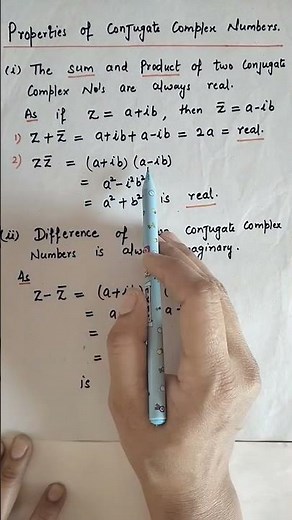 Properties of Conjugate Complex Numbers.
(i) The sum and Product of two Conjugate
Complex No's are always real.
As if z = a+ib, then z̄ = a-ib
1) z + z̄ = a+ib+a-ib = 2a = real.
2) z z̄ = (a+ib) (a-ib)
= a² - i²b²
= a² + b² is real.
(ii) Difference of Conjugate Complex
Numbers is
As
z - z̄ =
=
=
=
is